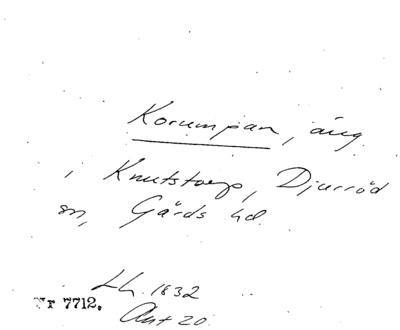 Korumpan, äng
i Knutstorp, Djurröd
sn, Gärds hd.
Lh. 1832
Akt 20.
Nr 7712.